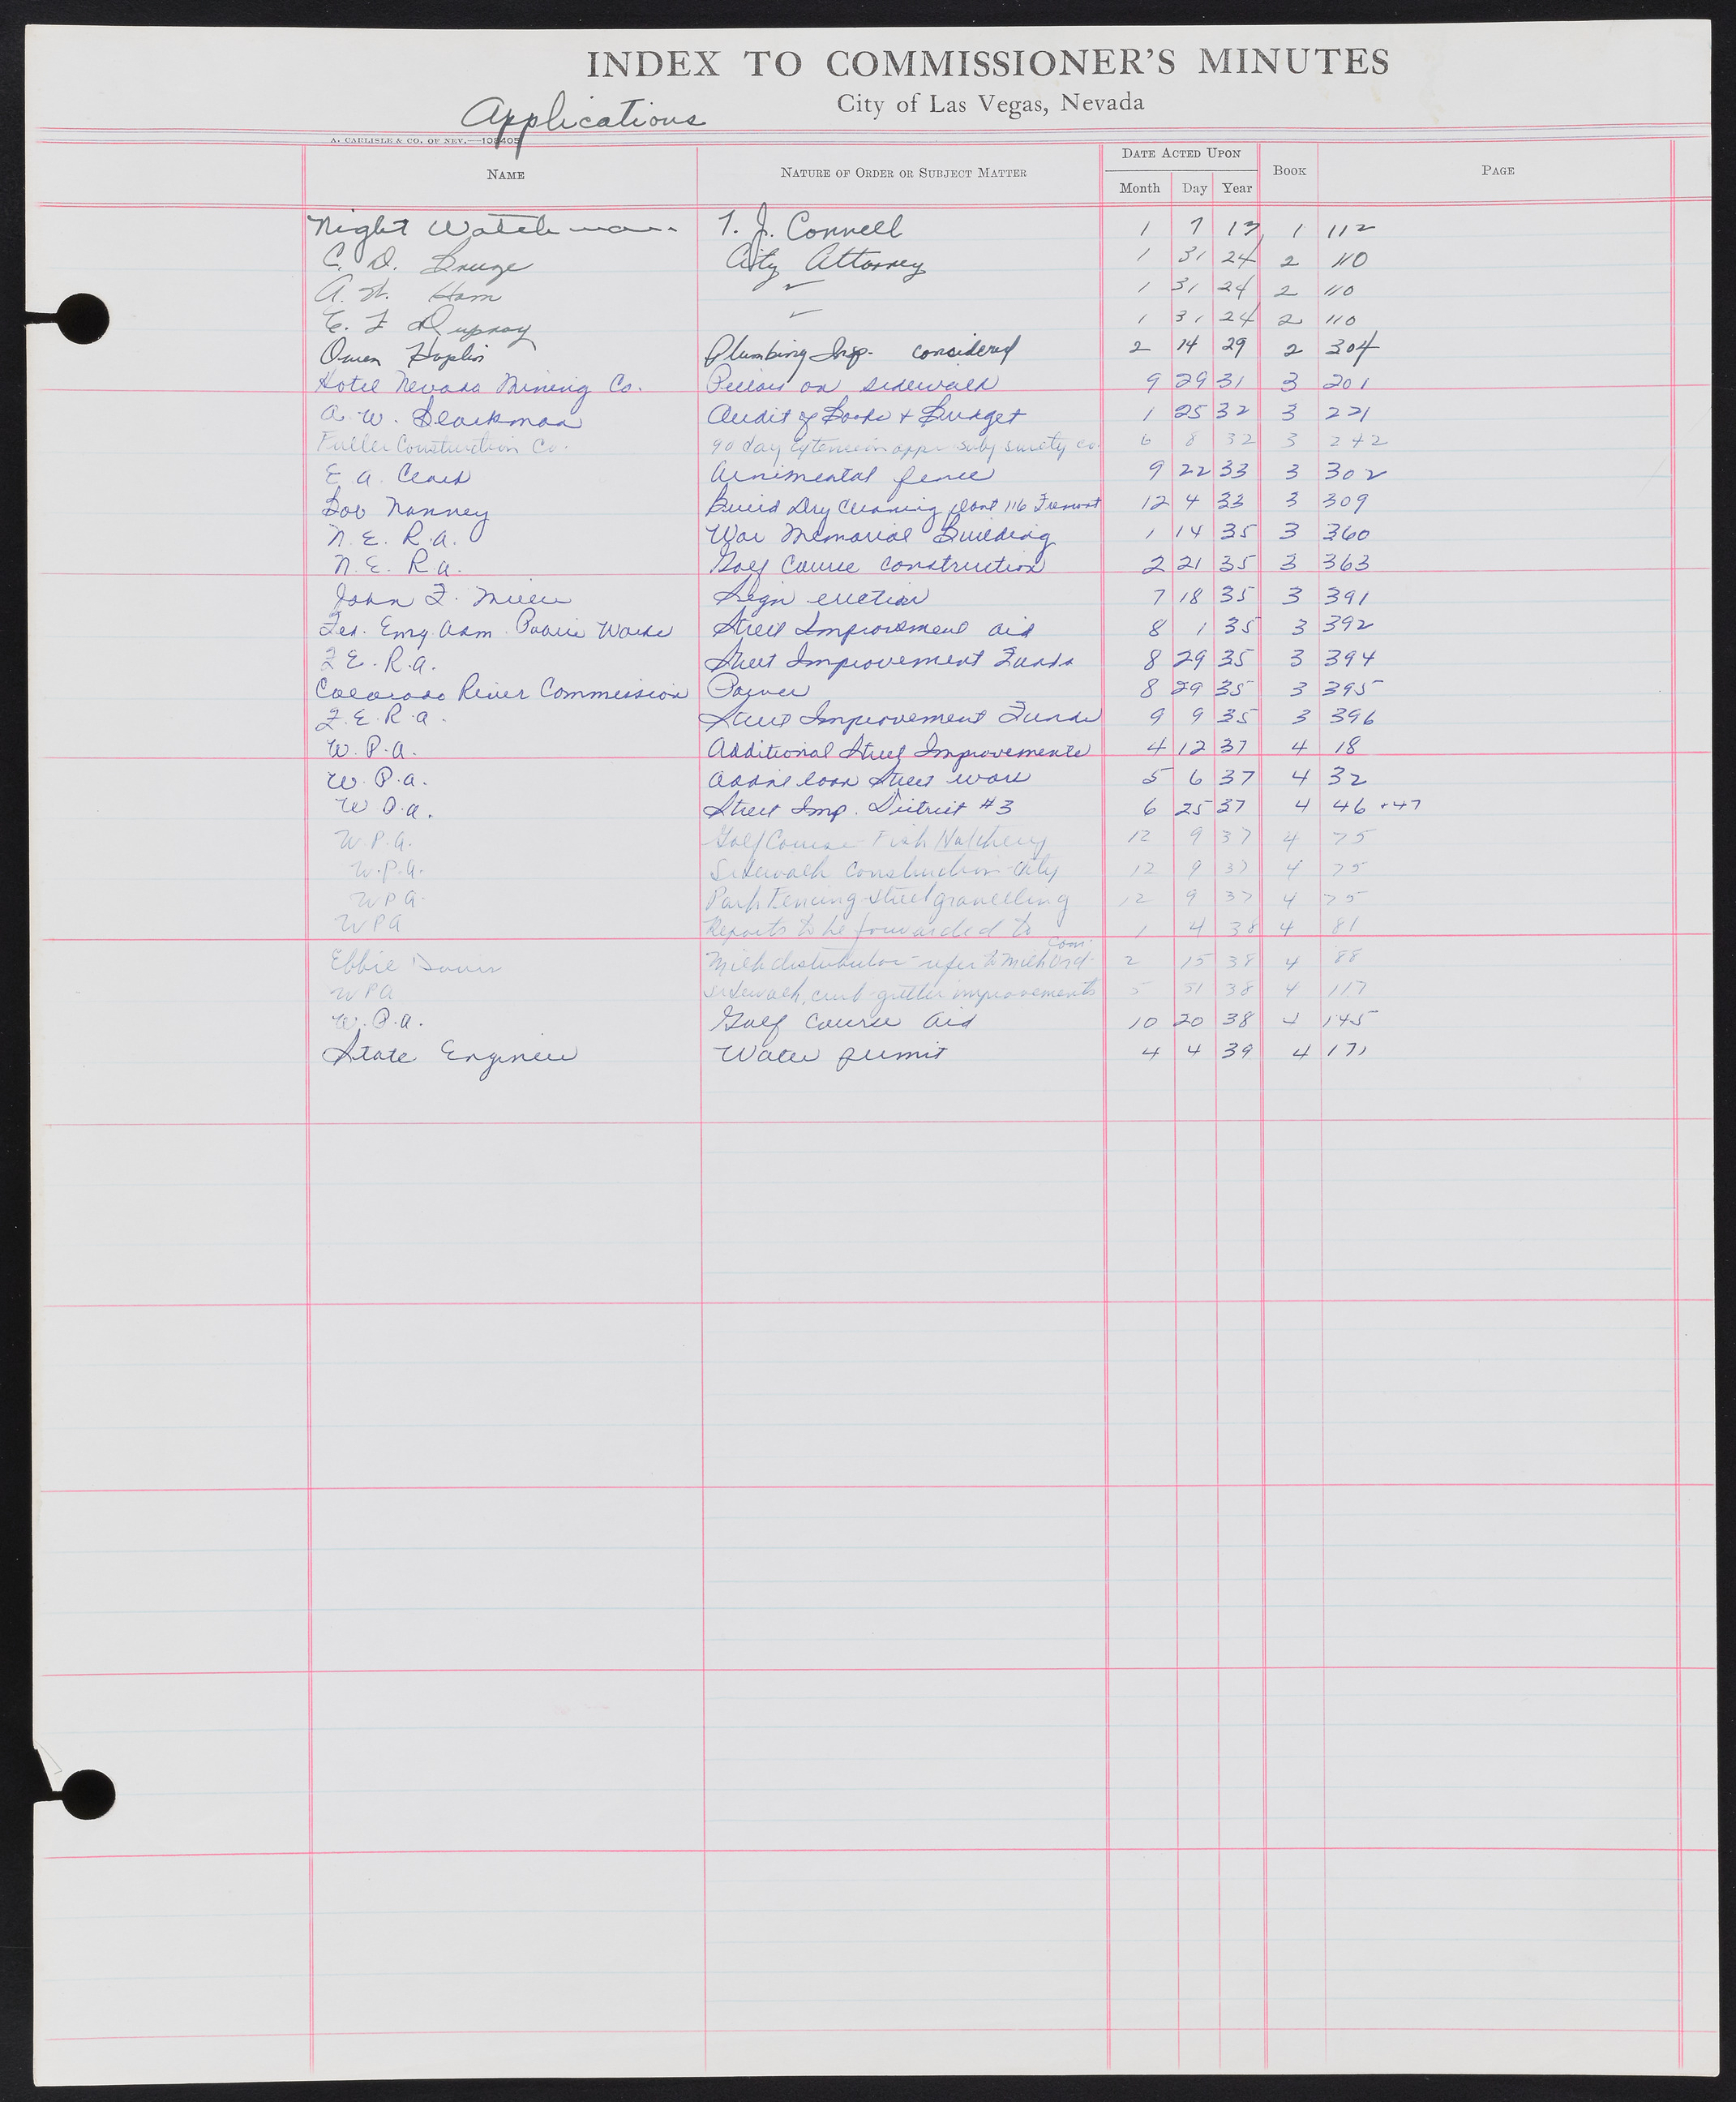 INDEX TO COMMISSIONER'S MINUTES
City of Las Vegas, Nevada
Applications
A. CARLISLE & CO. OF NEV.—108405
NAME NATURE OF ORDER OR SUBJECT MATTER DATE ACTED UPON BOOK PAGE
Month Day Year
Night Watchman T. J. Connell 1 7 13 1 112
C. D. Breeze City Attorney 1 31 24 2 110
A. W. Ham ✓ 1 31 24 2 110
E. F. Dupray ✓ 1 31 24 2 110
Owen Hoplin Plumbing Insp. considered 2 14 29 2 304
Hotel Nevada Mining Co. Pillars on sidewalk 9 29 31 3 201
A. W. Blackman Audit of Books & Budget 1 25 32 3 221
Fuller Construction Co. 90 day extension appr. subj surety co. 6 8 32 3 242
E. A. Clark Arnimental fence 9 22 33 3 302
Bob Nanney Build Dry Cleaning plant 116 Fremont 12 4 33 3 309
N. E. R. A. War Memorial Building 1 14 35 3 360
N. E. R. A. Golf Course construction 2 21 35 3 363
John F. Miller Sign erection 7 18 35 3 391
Fed. Emg. Adm. Public Works Street Improvement aid 8 1 35 3 392
F. E. R. A. Street Improvement Funds 8 29 35 3 394
Colorado River Commission Power 8 29 35 3 395
F. E. R. A. Street Improvement Funds 9 9 35 3 396
W. P. A. Additional Street Improvements 4 12 37 4 18
W. P. A. Addnl loan Street work 5 6 37 4 32
W. P. A. Street Imp. District #3 6 25 37 4 46 + 47
W. P. A. Golf Course - Fish Hatchery 12 9 37 4 75
W. P. A. Sidewalk Construction - City 12 9 37 4 75
WPA Park Fencing - Street gravelling 12 9 37 4 75
WPA Reports to be forwarded to 1 4 38 4 81
Ebbie Davis Milk distributor - refer to Milk Ord. Com. 2 15 38 4 88
WPA Sidewalk, curb-gutter improvements 5 31 38 4 117
W. P. A. Golf Course Aid 10 20 38 4 145
State Engineer Water permit 4 4 39 4 171